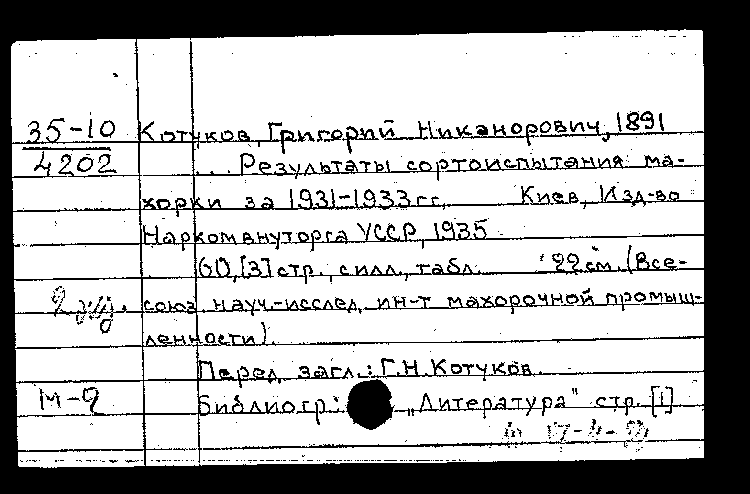 35-10 Котуков, Григорий Никанорович, 1891
4202 ... Результаты сортоиспытания ма-
хорки за 1931-1933 гг. Киев, Изд-во
Наркомвнуторга УССР, 1935
60, [3] стр., с илл., табл. 22 см. (Все-
союз. науч.-исслед. ин-т махорочной промыш-
ленности).
Перед загл.: Г.Н. Котуков.
М-2 Библиогр: "Литература" стр. [1]